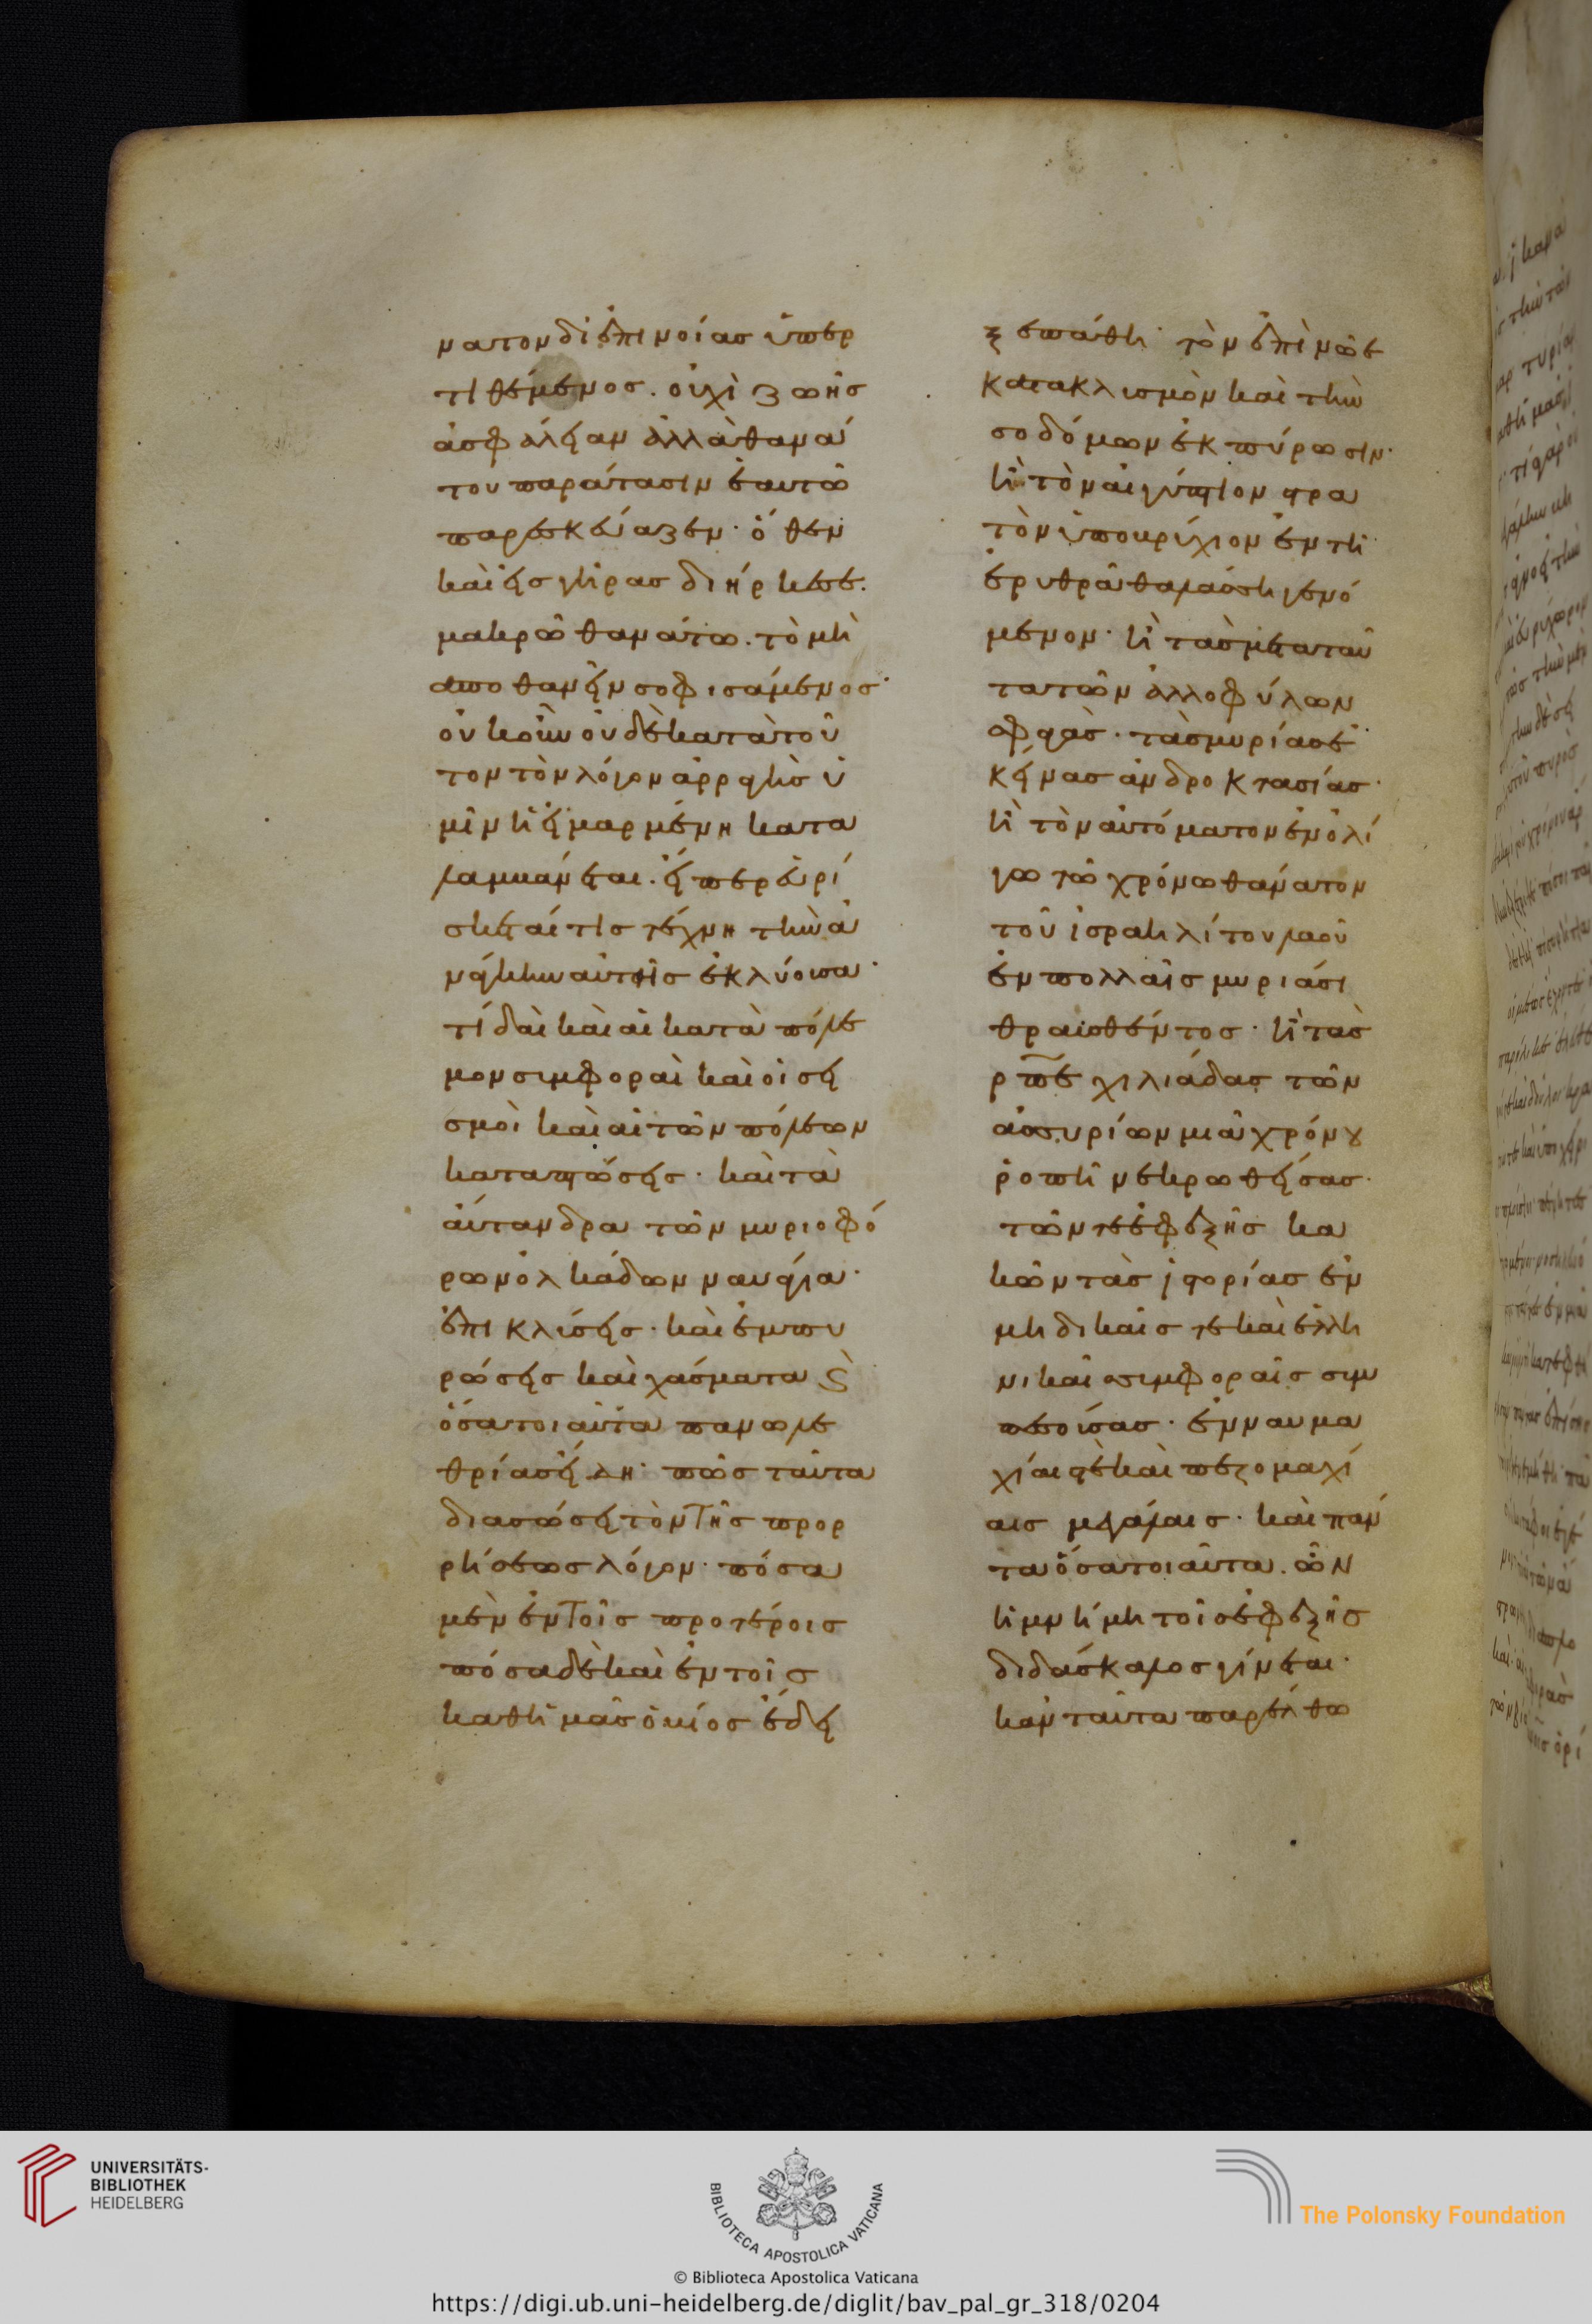 νατον δι' ἐπινοίας ὑπερ
τιθέμενος. οὐχὶ ζωῆς
ἀσφάλειαν ἀλλὰ θανά
του παράτασιν ἑαυτῶ
παρεσκεύαζεν· ὅθεν
καὶ εἰς γῆρας διήρκεσε.
μακρῶ θανάτω. τὸ μὴ
ἀποθανεῖν σοφισάμενος·
οὐκοῦν οὐδὲ κατὰ τοῦ
τον τὸν λόγον ἀρραγὴς ὑ
μῖν ἡ εἱμαρμένη κατα
λαμβάνεται. εἴπερ εὑρί
σκεταί τις τέχνη τὴν ἀ
νάγκην αὐτῆς ἐκλύουσα·
τί δαὶ καὶ αἱ κατὰ πόλε
μον συμφοραὶ καὶ οἱ σει
σμοὶ καὶ αἱ τῶν πόλεων
καταπτώσεις· καὶ τὰ
αὔτανδρα τῶν μυριοφό
ρων ὁλκάδων ναυάγια·
ἐπικλύσεις· καὶ ἐμπυ
ρώσεις καὶ χάσματα καὶ
ὅσα τοιαῦτα πανωλε
θρίας εἴδη· πῶς ταῦτα
διασώσει τὸν τῆς προρ
ρήσεως λόγον· πόσα
μὲν ἐν τοῖς προτέροις
πόσα δὲ καὶ ἐν τοῖς
καθ' ἡμᾶς ὁ βίος ἔδει
ξε πάθη· τὸν ἐπὶ νῶε
κατακλισμὸν καὶ τὴν
σοδόμων ἐκπύρωσιν·
ἢ τὸν αἰγύπτιον στρα
τὸν ὑποβρύχιον ἐν τῆ
ἐρυθρᾶ θαλάσση γενό
μενον· ἢ τὰς μετὰ ταῦ
τα τῶν ἀλλοφύλων
σφαγὰς· τὰς μυρίας ἐ
κείνας ἀνδροκτασίας·
ἢ τὸν αὐτόματον ἐν ὀλί
γω τῶ χρόνω θάνατον
τοῦ ἰσραηλίτου λαοῦ
ἐν πολλαῖς μυριάσι
θραυσθέντος· ἢ τὰς
ρπε χιλιάδας τῶν
ἀσσυρίων μιᾶ χρόνου
ῥοπῆ νεκρωθείσας·
τῶν τε ἐφεξῆς κα
κῶν τὰς ἱστορίας ἐν
μηδικαῖς τε καὶ ἑλλη
νικαῖς συμφοραῖς συμ
πεσούσας· ἐν ναυμα
χίαις τὲ καὶ πεζομαχί
αις μεγάλαις· καὶ πάν
τα ὅσα τοιαῦτα. ὧν
ἡ μνήμη τοῖς ἐφεξῆς
διδάσκαλος γίνεται·
κἂν ταῦτα παρέλθω
UNIVERSITÄTS-
BIBLIOTHEK
HEIDELBERG
BIBLIOTECA APOSTOLICA VATICANA
The Polonsky Foundation
© Biblioteca Apostolica Vaticana
https://digi.ub.uni-heidelberg.de/diglit/bav_pal_gr_318/0204